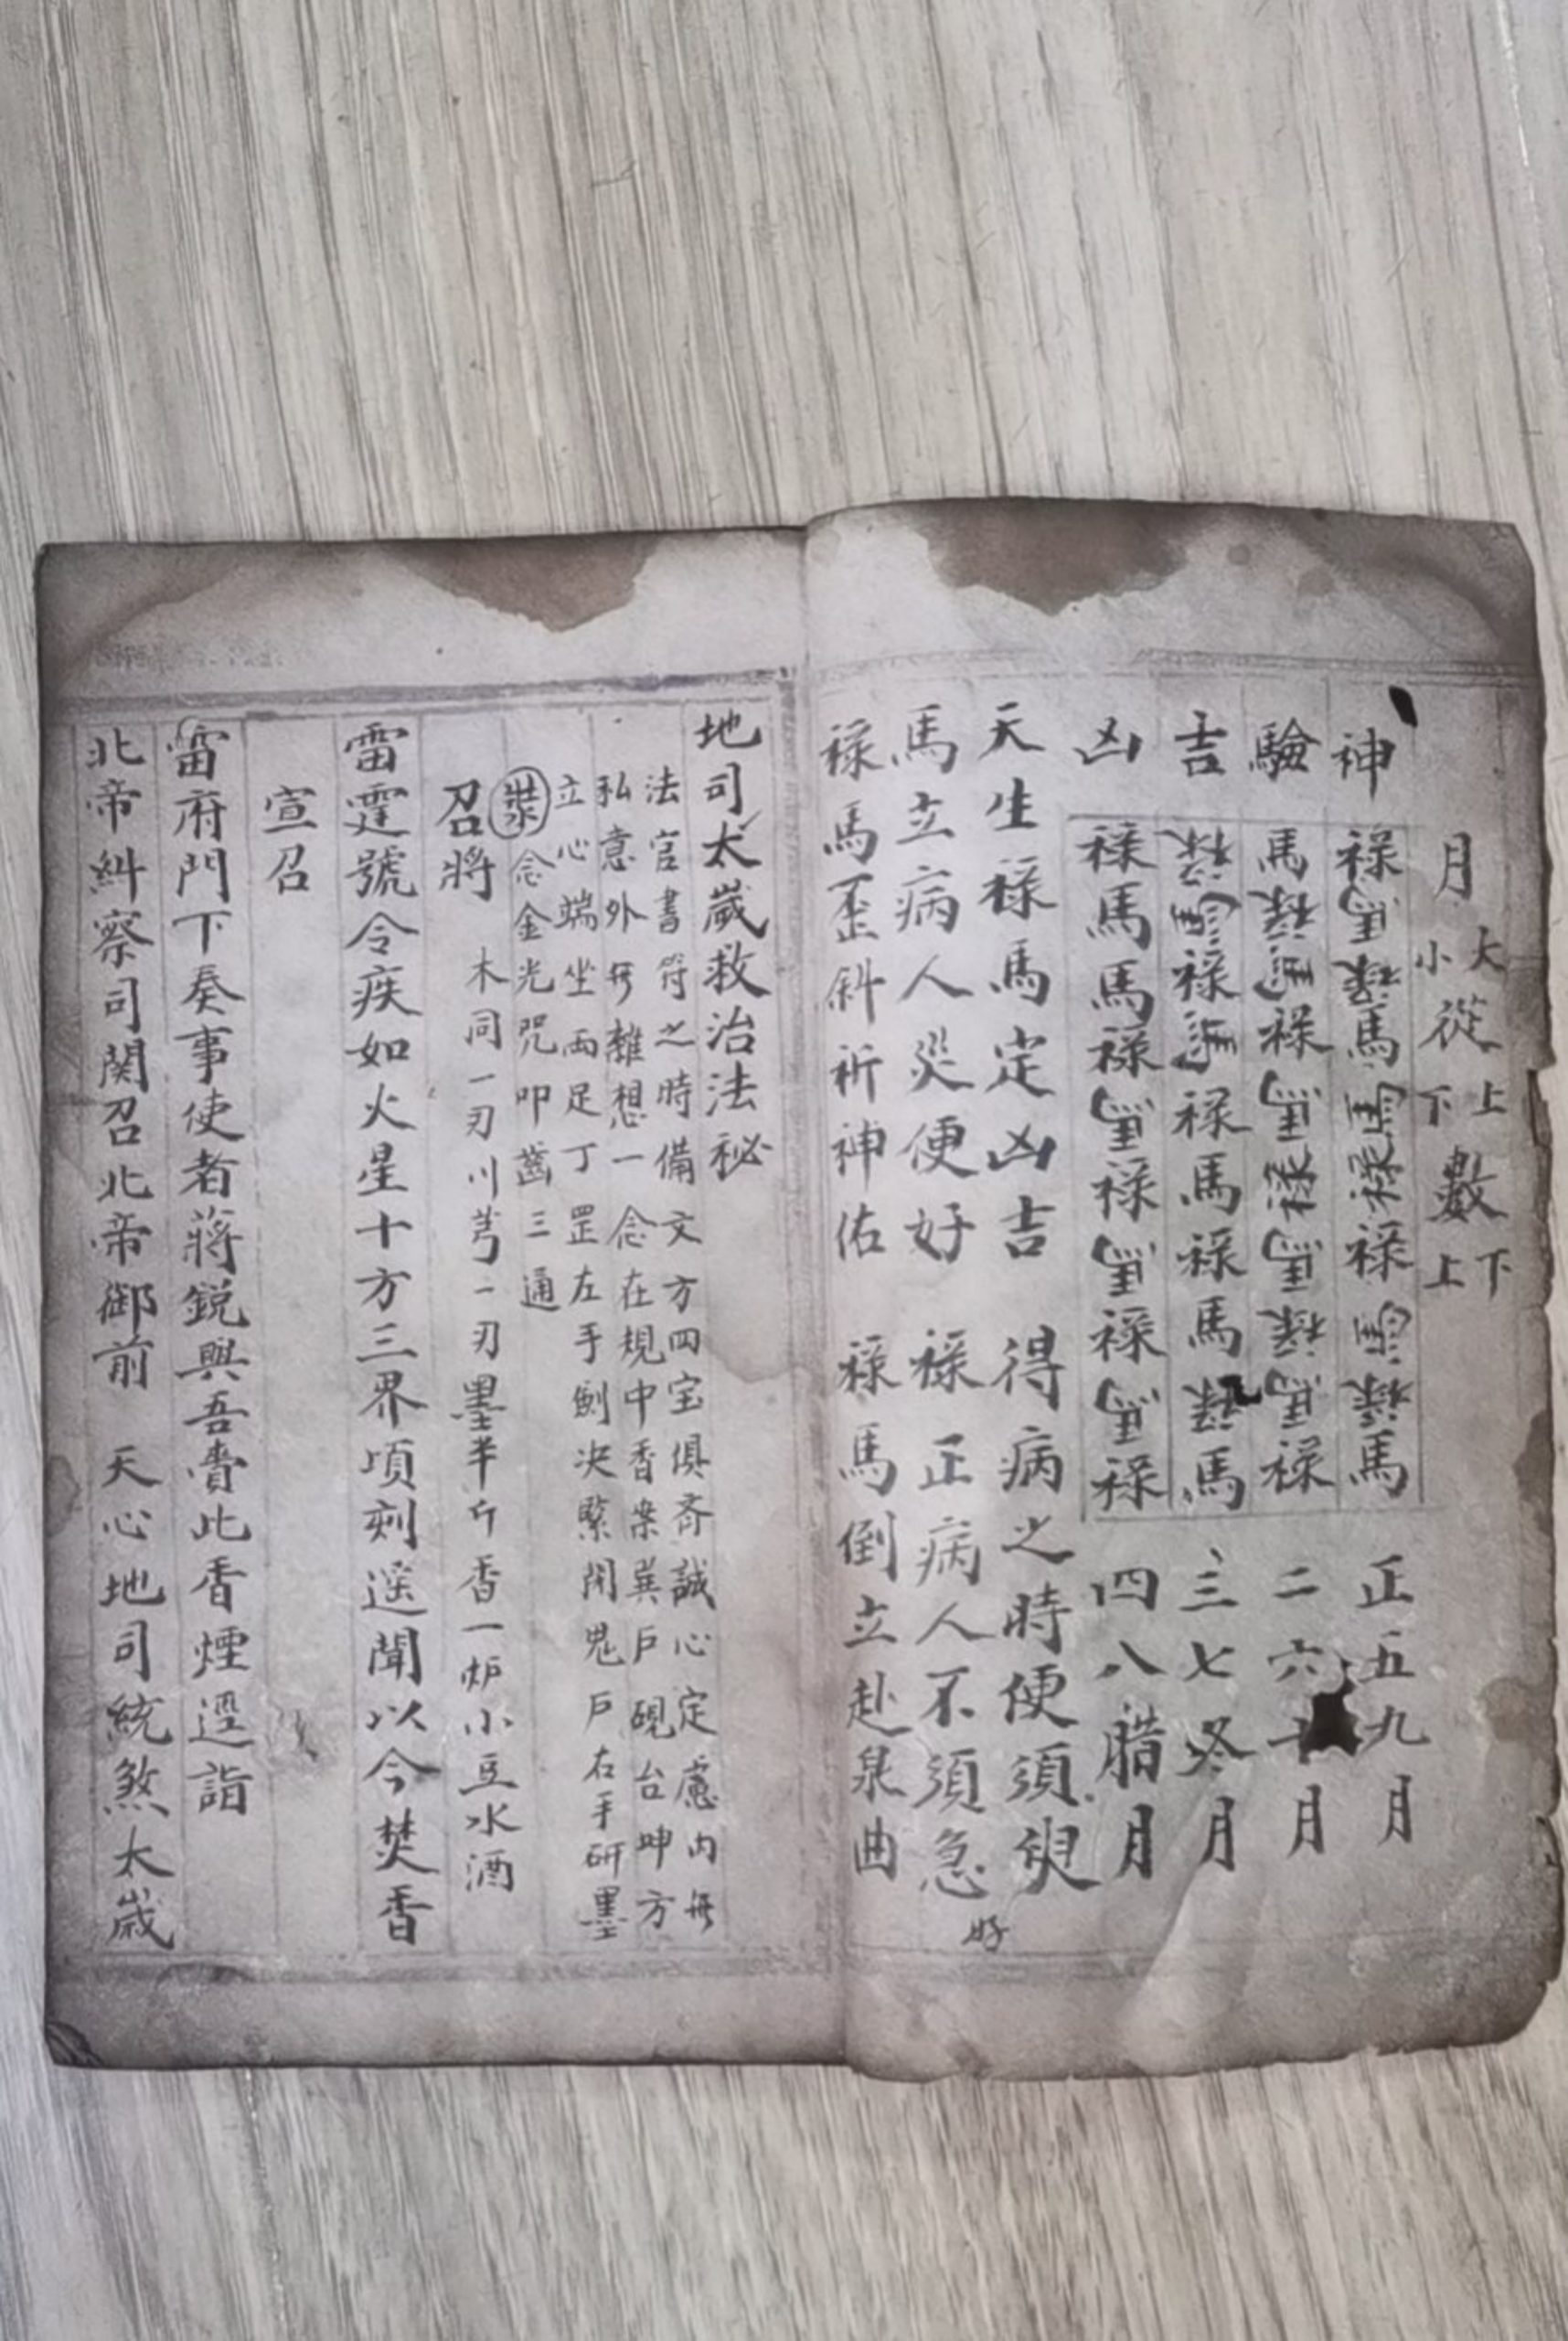 月大小從上下數下上
神祿馬祿馬馬祿祿馬祿馬正五九月
驗馬祿馬祿馬祿馬祿馬祿二六十月
吉祿馬祿馬祿馬祿馬祿馬三七冬月
凶祿馬馬祿馬祿馬祿馬祿四八腊月
天生祿馬定凶吉 得病之時便須臾
馬立病人災便好 祿正病人不須急
好
祿馬歪斜祈神佑 祿馬倒立赴泉曲
地司太歲救治法秘
法官書符之時備文方四宝俱斉誠心定慮内無
私意外無雜想一念在規中香案巽戶硯台坤方
立心端坐兩足丁罡左手劍决緊閉鬼戶右手研墨
念金光咒叩齒三通
召將 木同一刃川芎一刃墨半斤香一炉小豆水酒
雷霆號令疾如火星十方三界頃刻遥聞以今焚香
宣召
雷府門下奏事使者蔣銳與吾賫此香煙逕詣
北帝糾察司関召北帝御前 天心地司統煞太歲